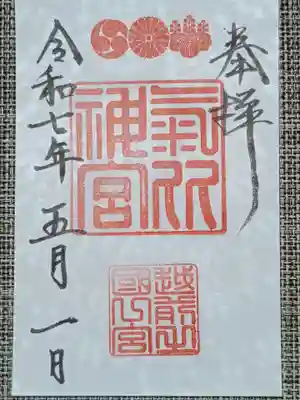 奉拝
氣比
神宮
越前之
國一宮
令和七年 五月 一日